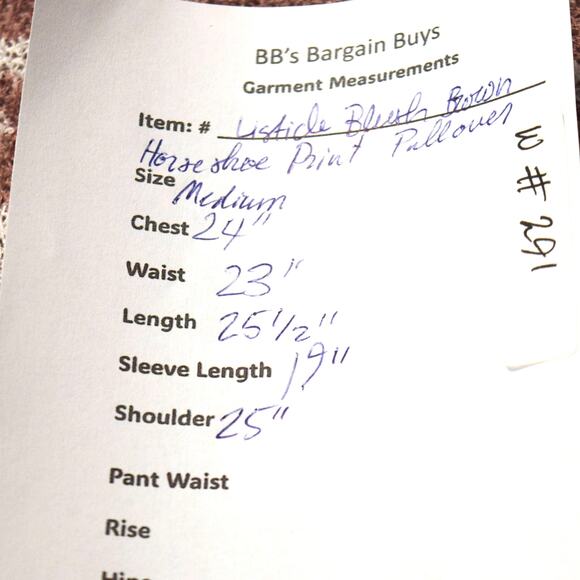 BB's Bargain Buys
Garment Measurements
Item: # Listicle Blush Brown
Horseshoe Print Pullover
Size Medium
Chest 24"
Waist 23"
Length 25 1/2"
Sleeve Length 19"
Shoulder 25"
Pant Waist
Rise
W # 291